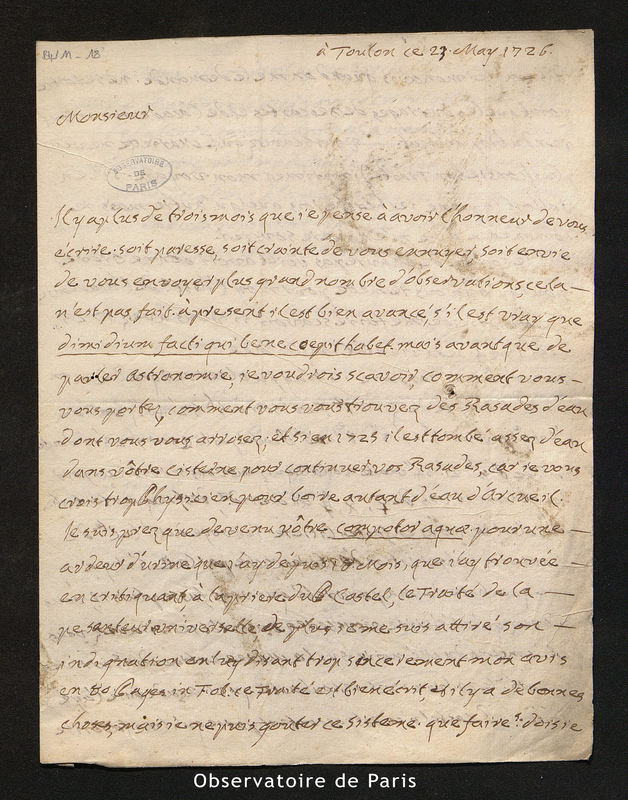 à Toulon ce 23. May 1726.
Monsieur
OBSERVATOIRE
DE
PARIS
Il y a plus de trois mois que ie pense à avoir l'honneur de vous
écrire. soit paresse, soit crainte de vous ennuyer, soit envie
de vous envoyer plus grand nombre d'observations, cela —
n'est pas fait. à present il est bien avancé, s'il est vray que
dimidium facti qui bene coepit habet. mais avant que de
parler Astronomie, ie voudrois scavoir, comment vous —
vous portez, comment vous vous trouvez des Rasades d'eau
dont vous vous arrosez, et si en 1725 il est tombé assez d'eau
dans vôtre cisterne pour continuer vos Rasades, car ie vous
crois trop Physicien pour boire autant d'eau d'Arcueil.
Ie suis prez que devenu vôtre compotor aquæ pour une —
ardeur d'urine que i'ay depuis mois, que i'ay trouvée —
en critiquant, à la priere du P. Castel, le Traité de la —
pesanteur universelle. de plus ie me suis attiré son —
indignation en luy disant trop sincerement mon avis
en 80 Pages in Fol. ce Traité est bien écrit, et il y a de bonnes
choses. mais ie ne puis gouter ce sisteme. que faire? dois ie
Observatoire de Paris